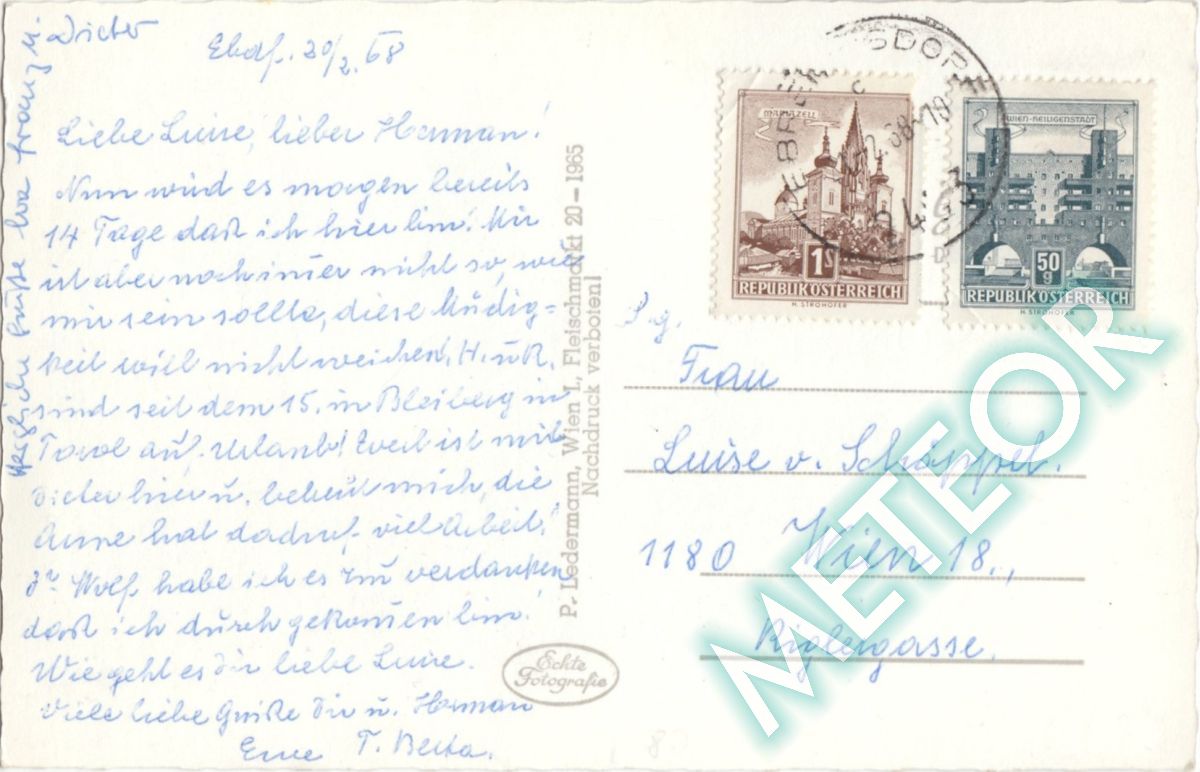 Ebdf. 20/2. 68
Liebe Luise, lieber Herman!
Nun wird es morgen bereits
14 Tage daß ich hier bin! Mir
ist aber noch imer nicht so, wie
mir sein sollte, diese Müdig=
keit will nicht weichen! H. u. R.
sind seit dem 15. in Bleiberg in
auf Urlaub! ist mit
Dieter hier u. mich, die
Anne hat dadurch viel Arbeit!
Dr. Wolf habe ich es zu verdanken
daß ich durch gekomen bin!
Wie geht es Dir liebe Luise.
Viele liebe Grüße Dir u. Herman
Eure T. Berta.
Herzliche Grüße von Franz u.
Dieter
P. Ledermann, Wien I., Fleischmarkt 20 – 1965
Nachdruck verboten!
Echte
Fotografie
MARIAZELL
1S
REPUBLIK ÖSTERREICH
H. STROHOFER
WIEN-HEILIGENSTADT
50
g
REPUBLIK ÖSTERREICH
H. STROHOFER
S. g.
Frau
Luise v. Schäppel.
1180 Wien 18.,
Riglergasse.
METEOR